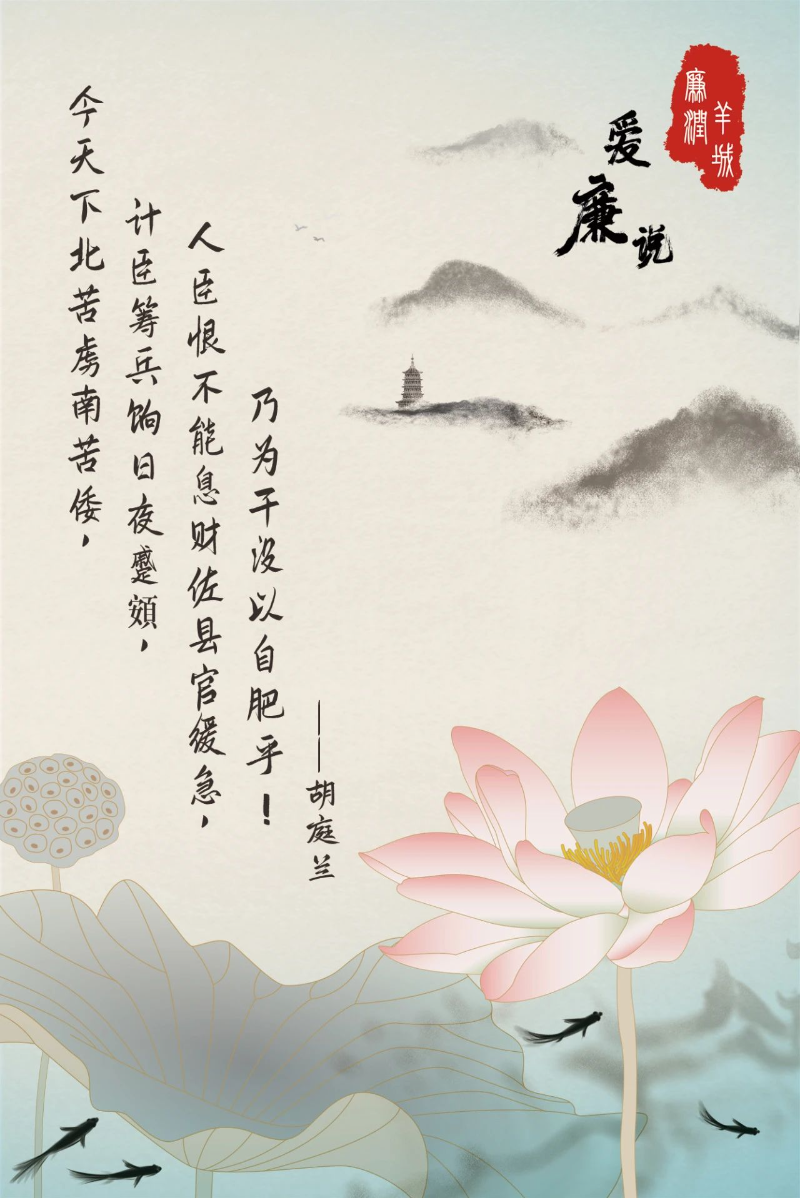 廉潤
羊城
爱廉说
今天下北苦虏南苦倭，
计臣筹兵饷日夜蹙頞，
人臣恨不能息财佐县官缓急，
乃为干没以自肥乎！
——胡庭兰